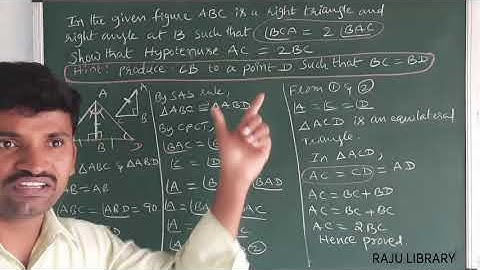 In the given figure ABC is a right triangle and
right angle at B such that ∠BCA = 2 ∠BAC
Show that Hypotenuse AC = 2BC
Hint: produce CB to a point D such that BC = BD
A
A
B
D
△ABC & △ABD
AB = AB
∠ABC = ∠ABD = 90
By SAS rule,
△ABC ≅ △ABD
By CPCT,
∠BAC =
∠C = ∠D
∠A = ∠BAD
∠A =
∠A =
②
From ① & ②
∠A = ∠C = ∠D
△ACD is an equilateral
triangle.
In △ACD,
AC = CD = AD
AC = BC + BD
AC = BC + BC
AC = 2BC
Hence proved.
RAJU LIBRARY